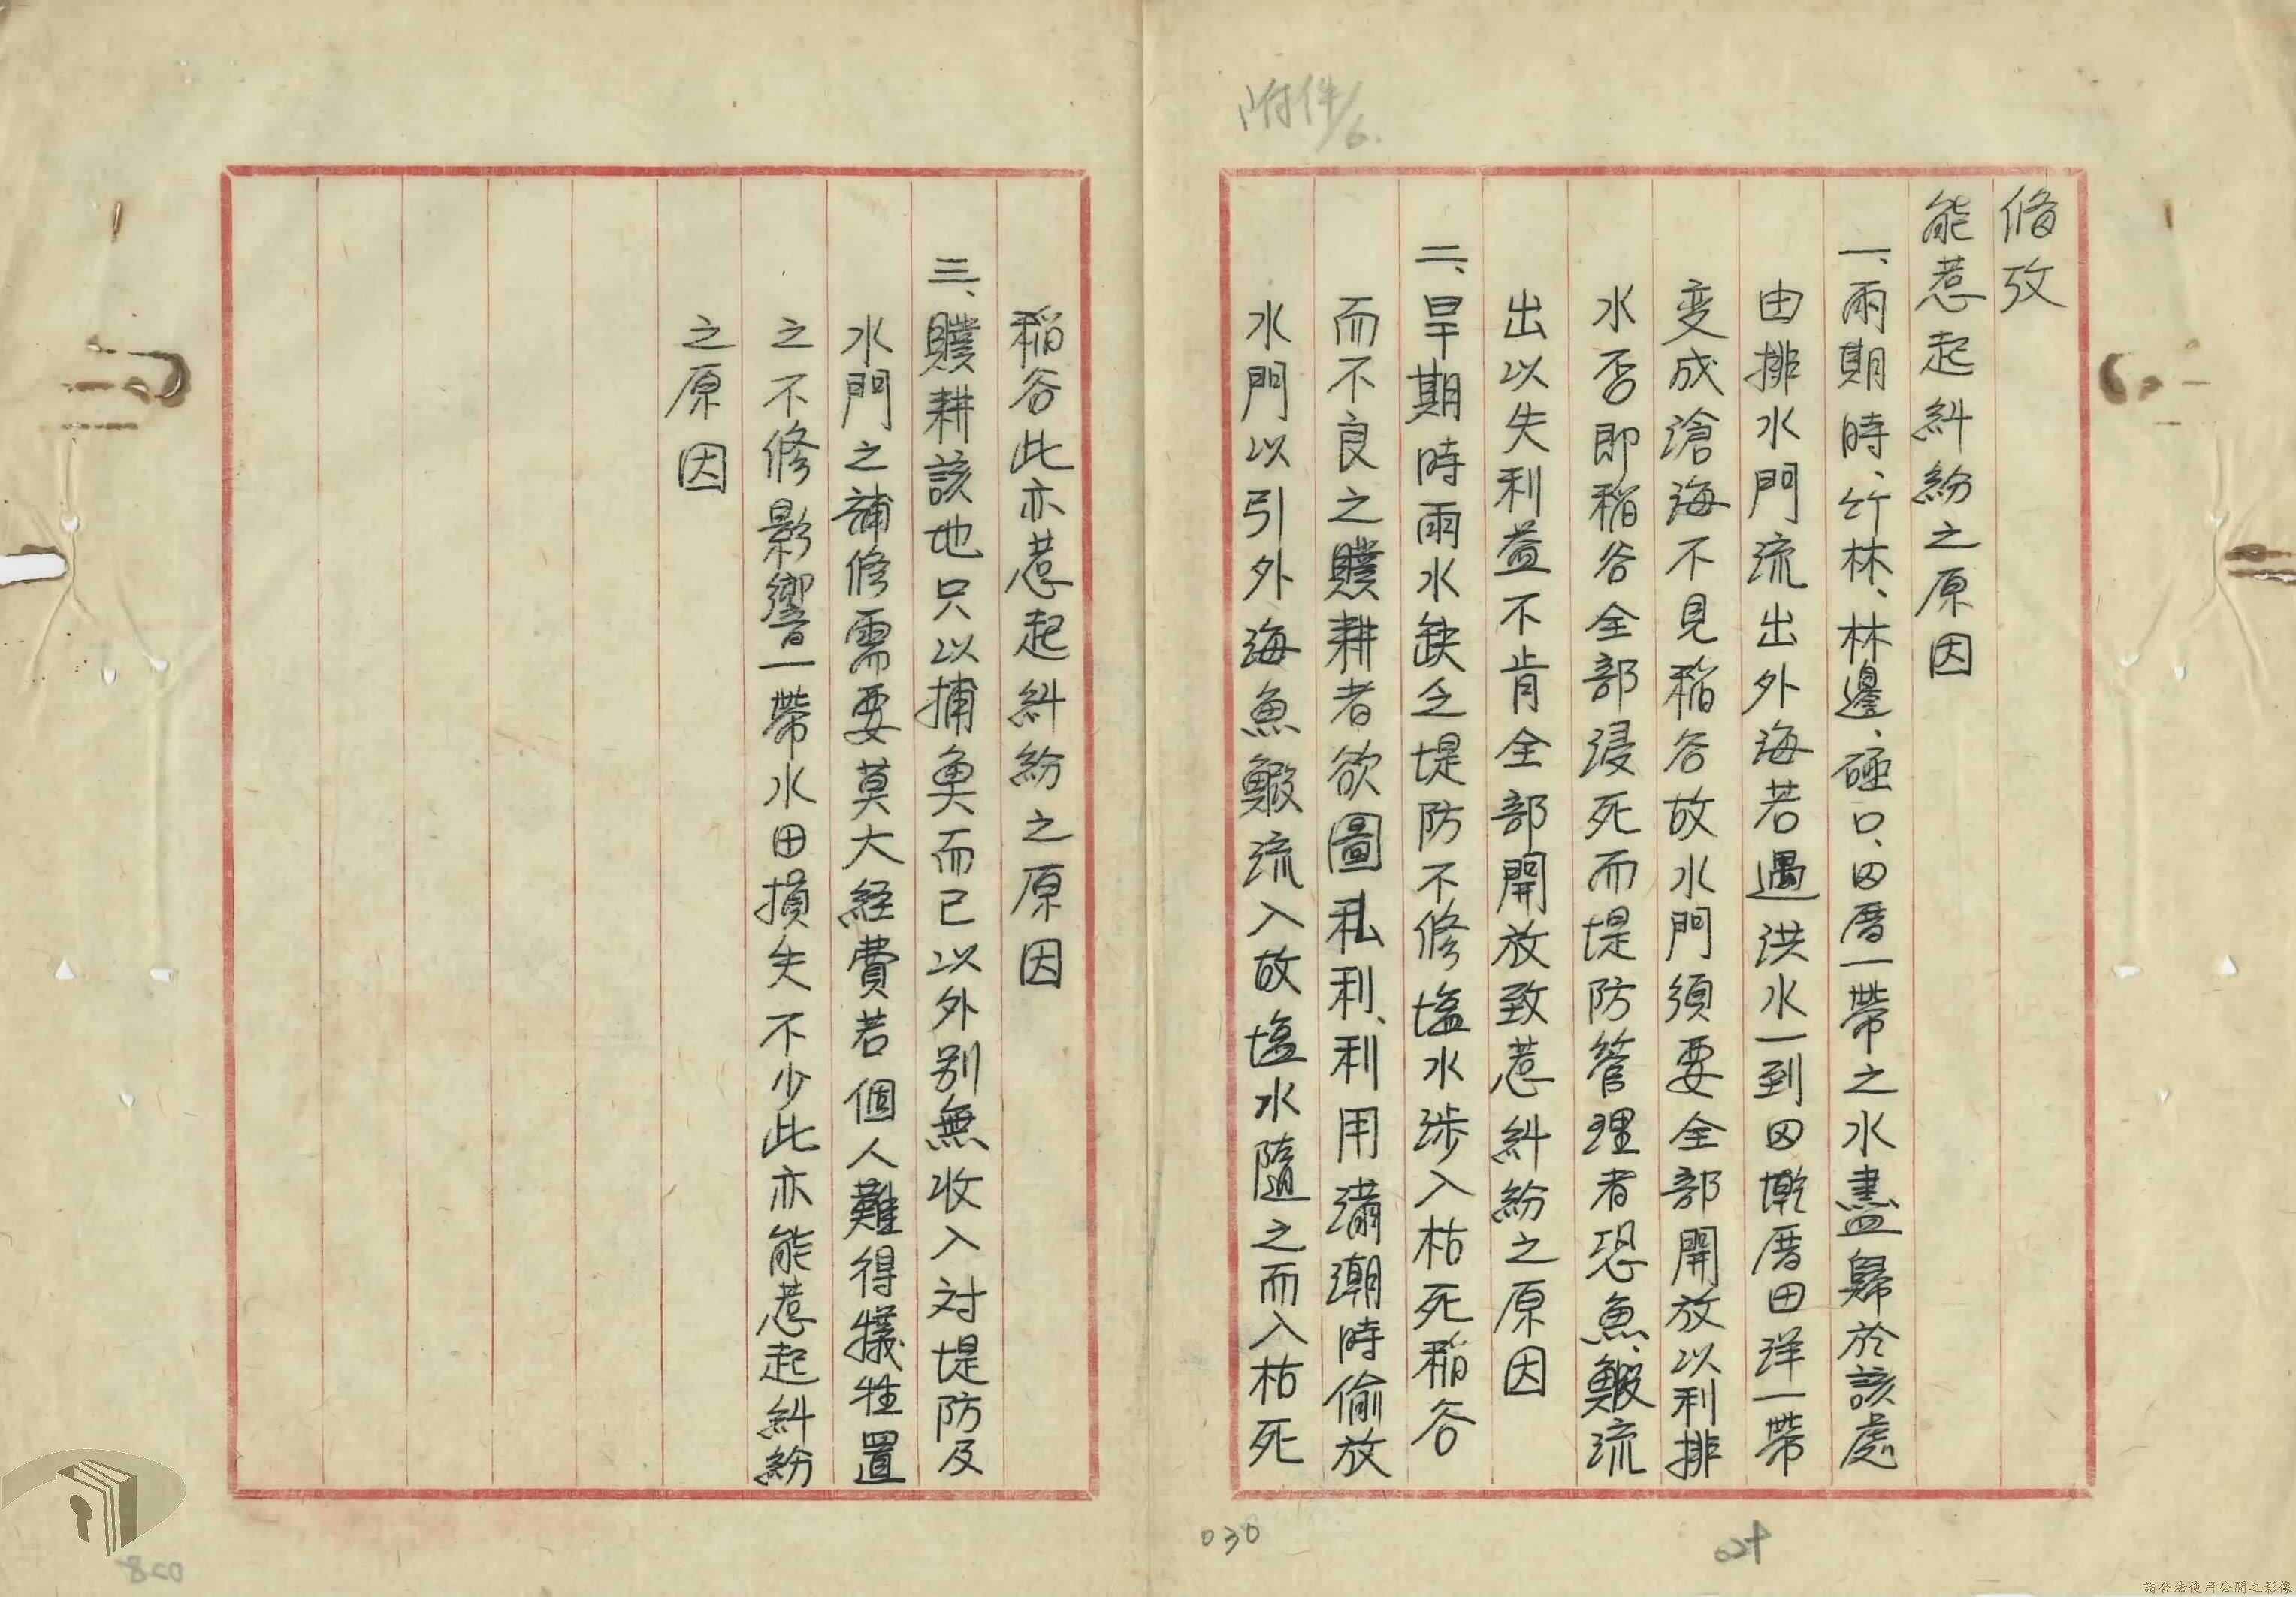 附件/6.
俻攷
能惹起糾紛之原因
一、雨期時、竹林、林邊、磘口、田厝一帶之水盡歸於該處
由排水門流出外海若遇洪水一到田墘厝田洋一帶
变成滄海不見稲谷故水門須要全部開放以利排
水否即稲谷全部浸死而堤防管理者恐魚鰕流
出以失利益不肯全部開放致惹糾紛之原因
二、旱期時雨水缺乏堤防不修塩水涉入枯死稲谷
而不良之贌耕者欲圖私利、利用滿潮時偷放
水門以引外海魚鰕流入故塩水隨之而入枯死
稲谷此亦惹起糾紛之原因
三、贌耕該地只以捕魚而已以外別無收入対堤防及
水門之補修需要莫大経費若個人難得犠牲置
之不修影響一帶水田損失不少此亦能惹起糾紛
之原因
030
請合法使用公開之影像